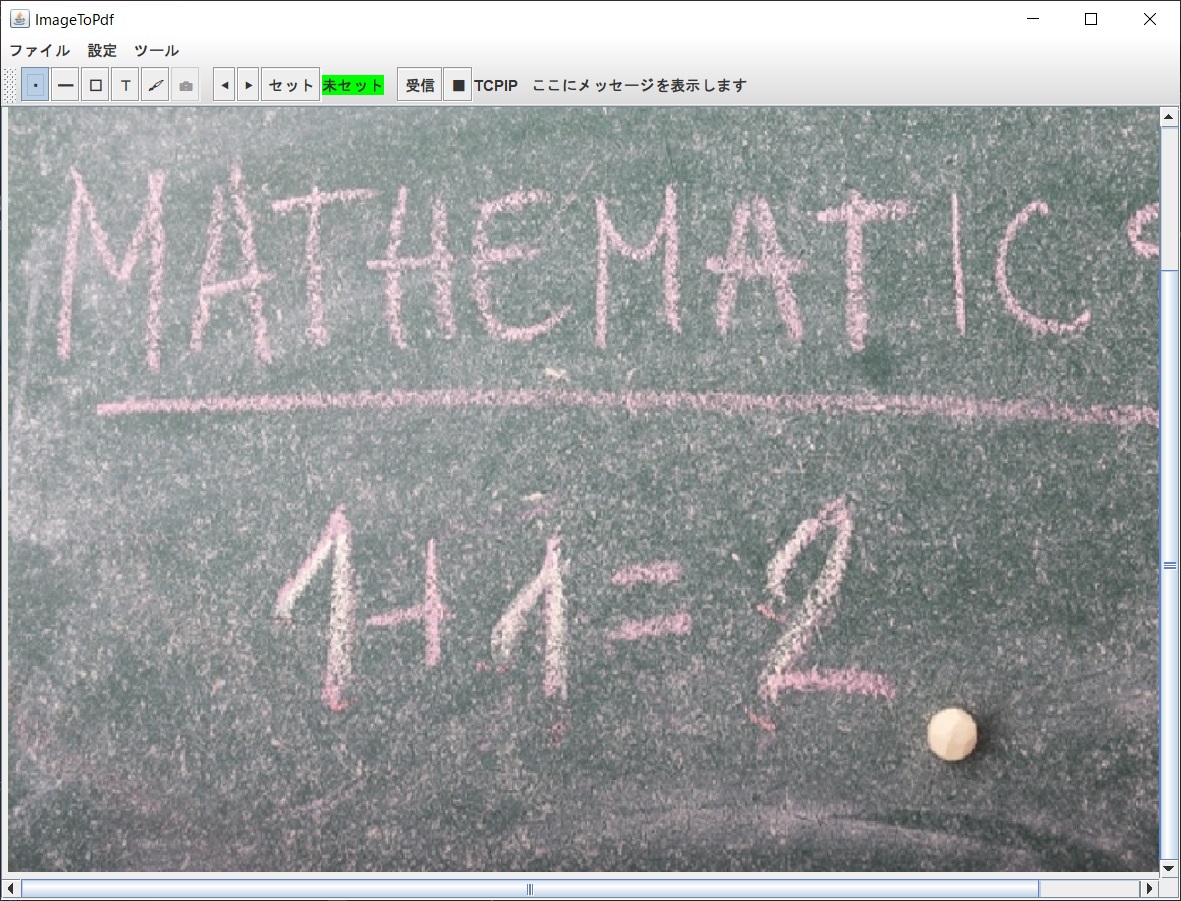 ImageToPdf
ファイル 設定 ツール
T セット 未セット 受信 TCPIP ここにメッセージを表示します
MATHEMATICS
1+1=2